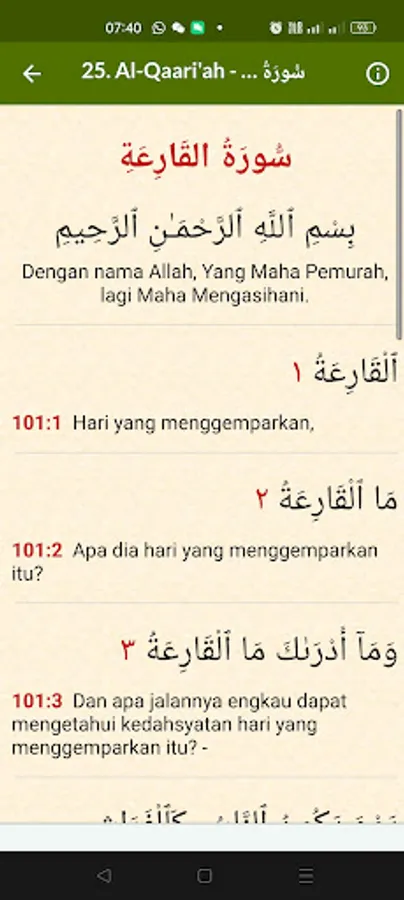 07:40
25. Al-Qaari'ah - ... سُورَةُ
سُّورَةُ القَارِعَةِ
بِسْمِ ٱللَّهِ ٱلرَّحْمَـٰنِ ٱلرَّحِيمِ
Dengan nama Allah, Yang Maha Pemurah,
lagi Maha Mengasihani.
ٱلْقَارِعَةُ ١
101:1 Hari yang menggemparkan,
مَا ٱلْقَارِعَةُ ٢
101:2 Apa dia hari yang menggemparkan
itu?
وَمَآ أَدْرَىٰكَ مَا ٱلْقَارِعَةُ ٣
101:3 Dan apa jalannya engkau dapat
mengetahui kedahsyatan hari yang
menggemparkan itu? -